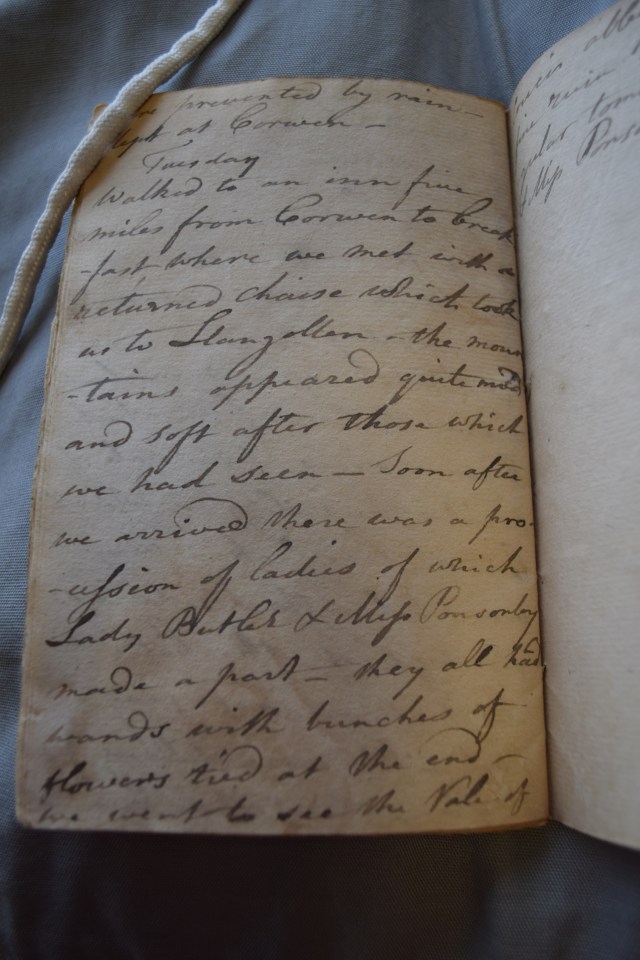 prevented by rain -
slept at Corwen -
Tuesday
Walked to an inn five
miles from Corwen to break
-fast where we met with a
returned chaise which took
us to Llangollen - the moun
-tains appeared quite mild
and soft after those which
we had seen - Soon after
we arrived there was a pro-
-cession of ladies of which
Lady Butler & Miss Ponsonby
made a part - they all had
wands with bunches of
flowers tied at the end -
we went to see the Vale of
ruin
& Miss Pons